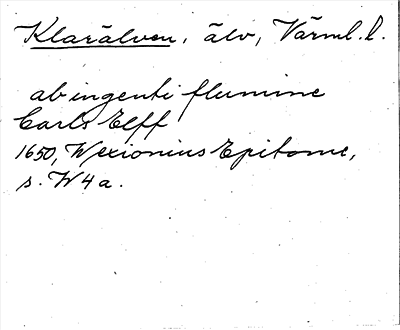 Klarälven, älv, Värml. l.
ab ingenti flumine
Carls Elff
1650, Wexionius Epitome,
s. W4a.